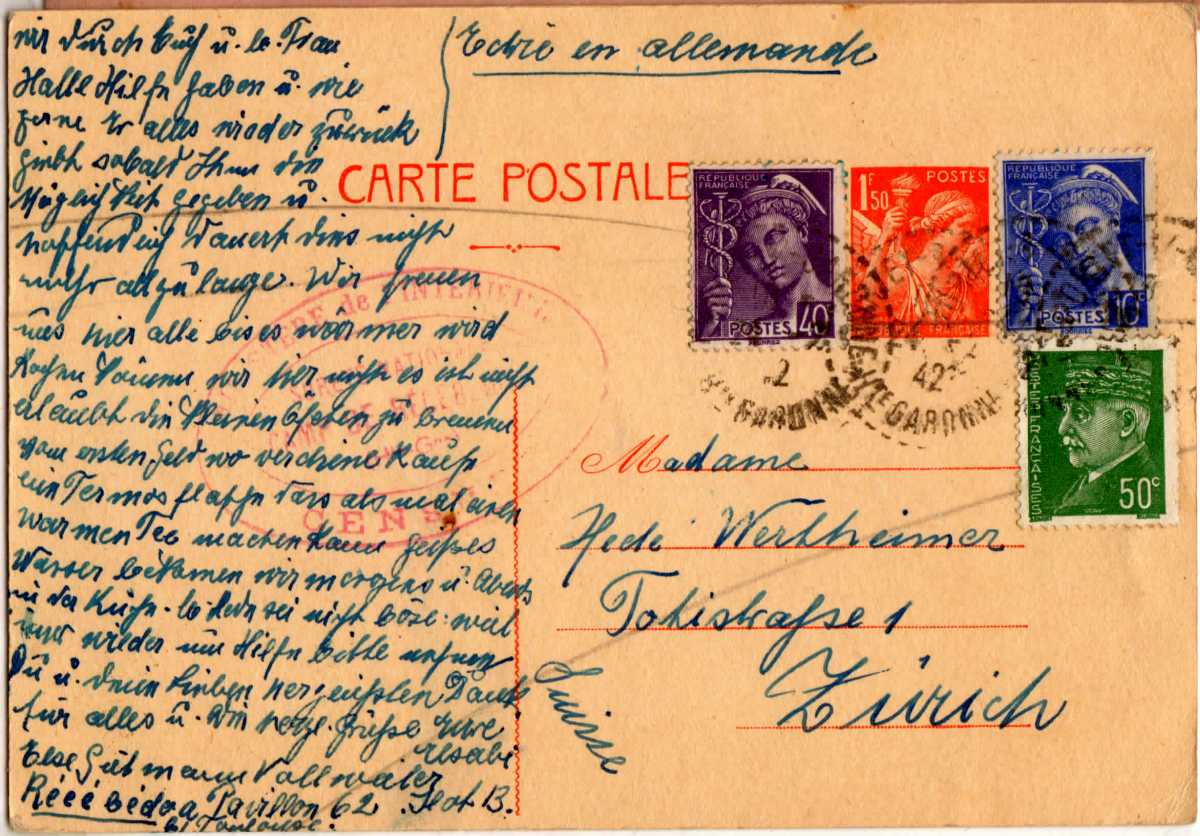 mir durch Euch u. lb. Frau
Halle Hilfe haben u. wie
gerne Er alles wieder zurück
giebt sobald Ihm die
Möglichkeit gegeben u.
hoffendlich dauert dies nicht
mehr allzulange. Wir freuen
uns hier alle bis es wärmer wird
Kochen können wir hier nicht es ist nicht
erlaubt die kleinen Öfen zu brennen
vom ersten Geld wo
ein Termosflasche dass als mal einen
warmen Tee machen kann heißes
Wasser bekomen wir morgens u. Abends
in der Küche. lb. Hede sei nicht böse weil
wieder um Hilfe bitte nehmen
Du u. deine Lieben herzlichsten Dank
für alles u. herzl. Grüße Eure
Else Gutmann Vollweiler
Récébédou Pavillon 62 Ilot B.
b/ Toulouse.
Ecrié en allemande
CARTE POSTALE
RÉPUBLIQUE FRANÇAISE
POSTES 40c
1F50 POSTES
RÉPUBLIQUE FRANÇAISE
RÉPUBLIQUE FRANÇAISE
POSTES 10c
POSTES FRANÇAISES
50c
42
Hte GARONNE
INTERIEUR
CAMP DE
CENS
Madame
Hede Wertheimer
Tödistraße 1
Zürich
Suisse